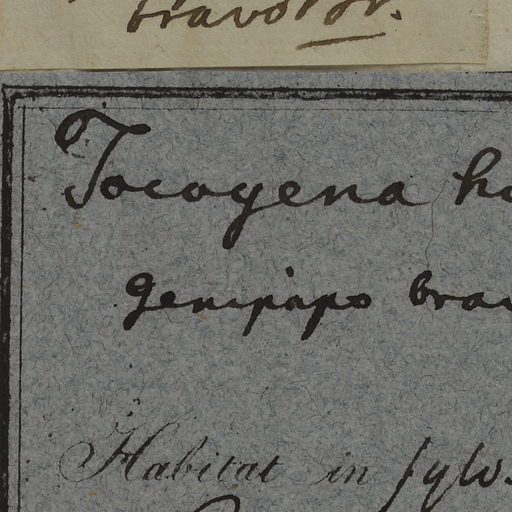 bravo Pr.
Tocoyena h
genipapo brav
Habitat in sylv.